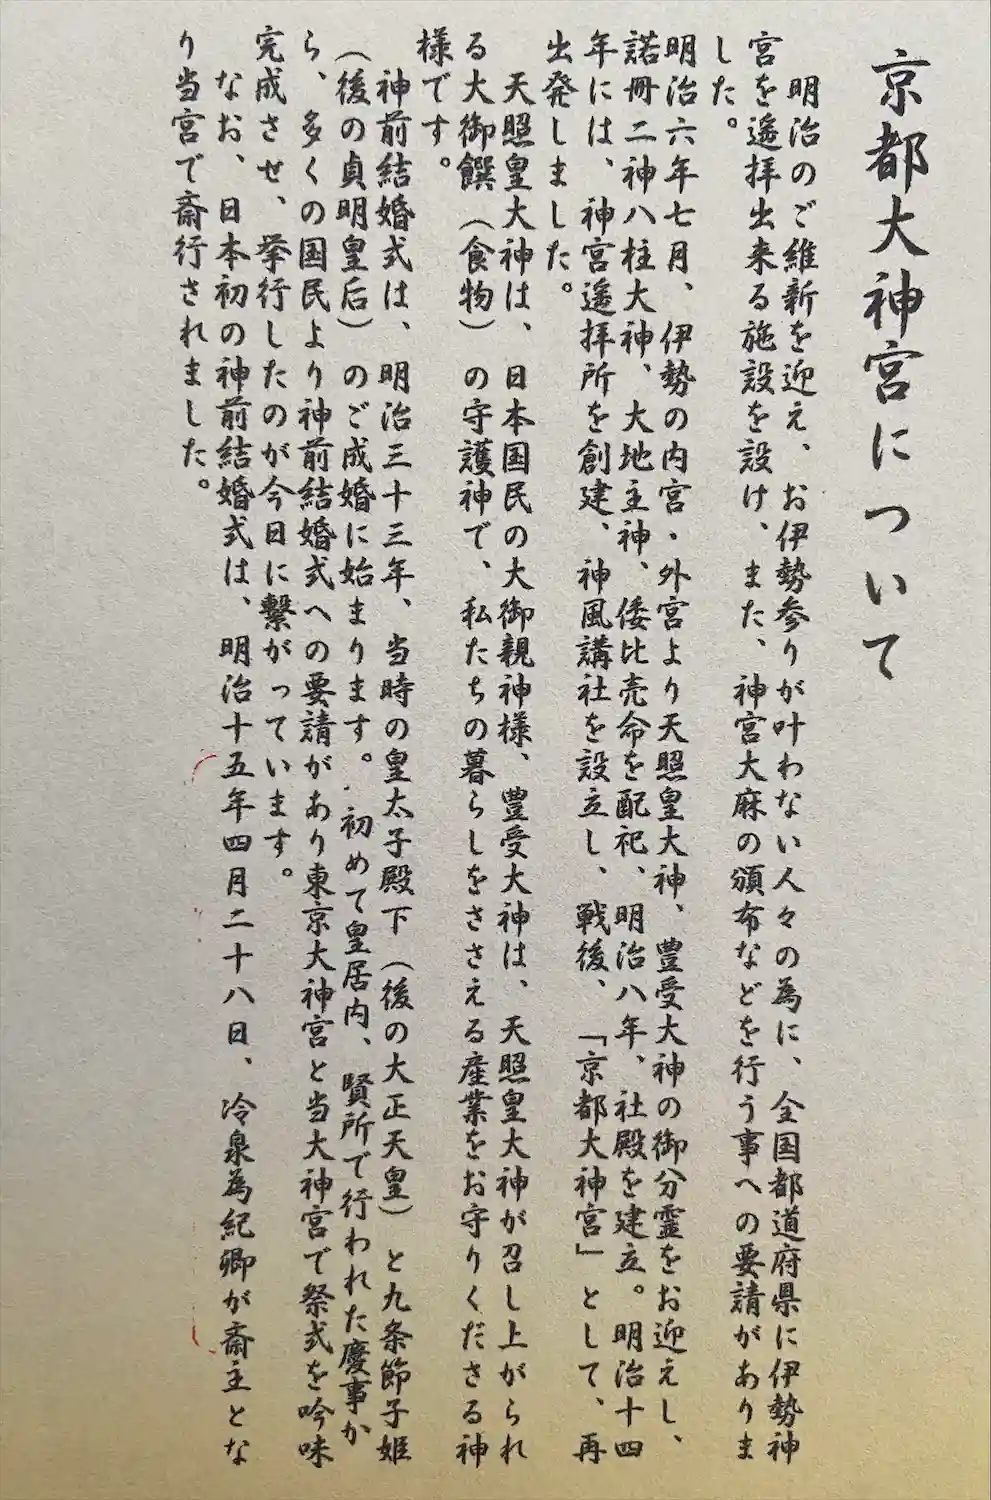 京都大神宮について
明治のご維新を迎え、お伊勢参りが叶わない人々の為に、全国都道府県に伊勢神
宮を遙拝出来る施設を設け、また、神宮大麻の頒布などを行う事への要請がありま
した。
明治六年七月、伊勢の内宮・外宮より天照皇大神、豊受大神の御分霊をお迎えし、
諾冊二神八柱大神、大地主神、倭比売命を配祀、明治八年、社殿を建立。明治十四
年には、神宮遙拝所を創建、神風講社を設立し、戦後、「京都大神宮」として、再
出発しました。
天照皇大神は、日本国民の大御親神様、豊受大神は、天照皇大神が召し上がられ
る大御饌（食物）の守護神で、私たちの暮らしをささえる産業をお守りくださる神
様です。
神前結婚式は、明治三十三年、当時の皇太子殿下（後の大正天皇）と九条節子姫
（後の貞明皇后）のご成婚に始まります。初めて皇居内、賢所で行われた慶事か
ら、多くの国民より神前結婚式への要請があり東京大神宮と当大神宮で祭式を吟味
完成させ、挙行したのが今日に繋がっています。
なお、日本初の神前結婚式は、明治十五年四月二十八日、冷泉為紀卿が斎主とな
り当宮で斎行されました。